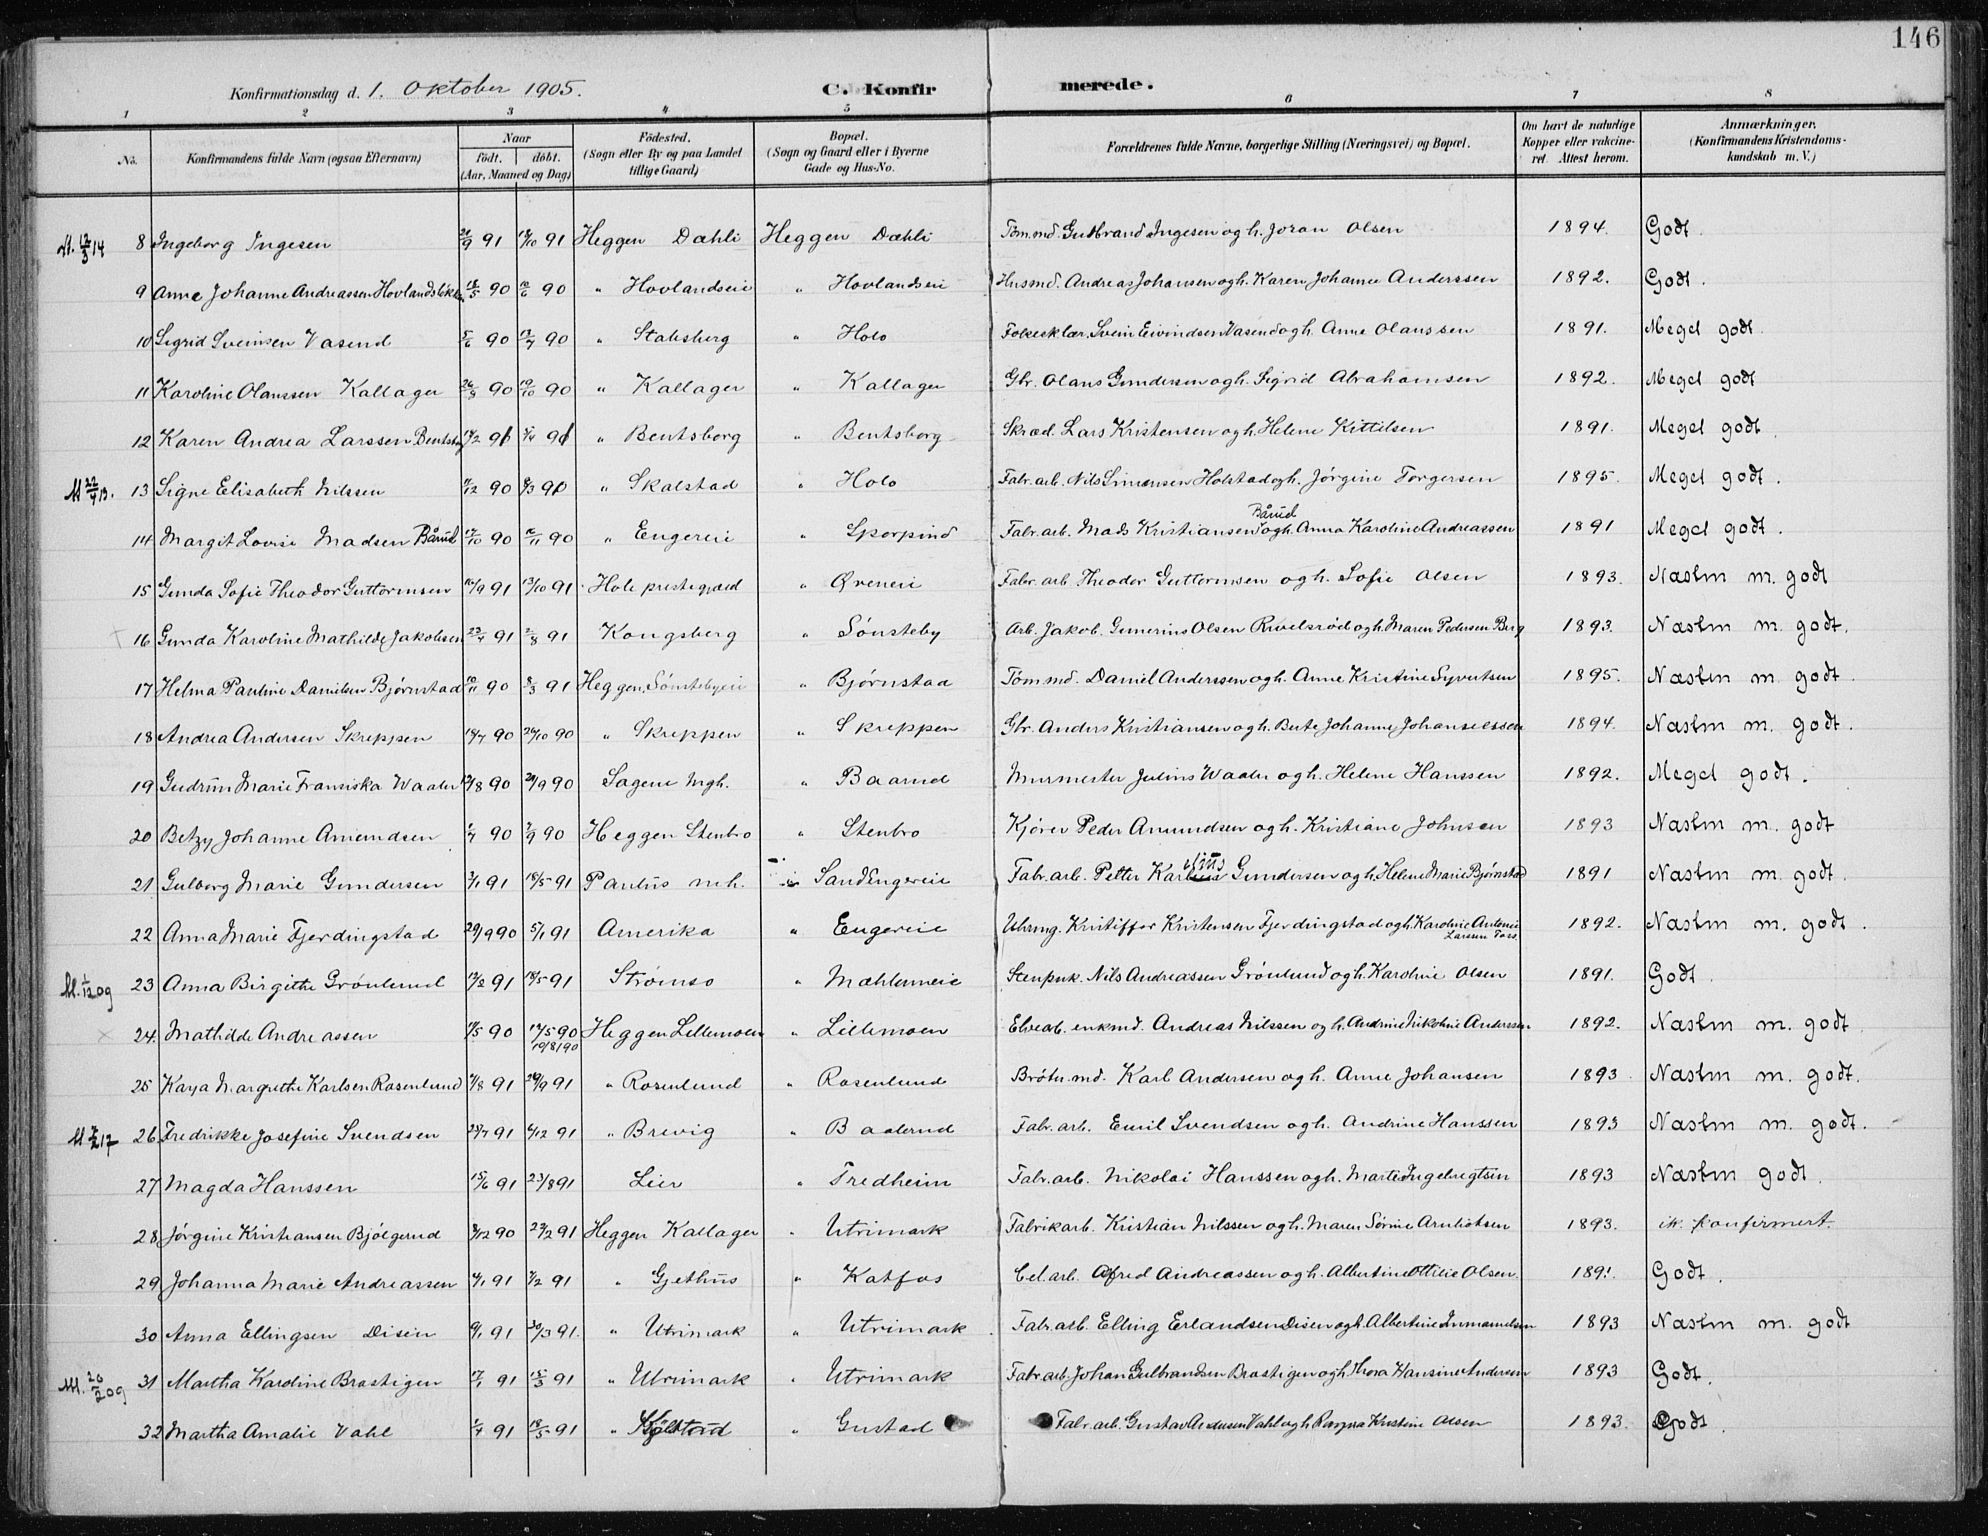 146
Konfirmationsdag d. 1. Oktober 1905. C. Konfirmerede.
1 2 3 4 5 6 7 8
No. Konfirmandens fulde Navn (ogsaa Efternavn) Naar født, døbt. (Aar, Maaned og Dag) Fødested. (Sogn eller By og paa Landet tillige Gaard) Bopæl. (Sogn og Gaard eller i Byerne Gade og Hus-No. Forældrenes fulde Navne, borgerlige Stilling (Næringsvei) og Bopæl. Om havt de naturlige Kopper eller vakcineret. Attest herom. Anmærkninger. (Konfirmandens Kristendomskundskab m. V.)
8 Ingeborg Ingesen 91 91 Heggen Dæhli Heggen Dæhli Tømmd. Gulbrand Ingesen og h. Joran Olsen 1894. Godt.
9 Anne Johanne Andreassen 90 90 " Hovlandseie " Hovlandseie Husmd. Andreas Johansen og h. Karen Johanne Anderssen 1892. Godt.
10 Sigrid Sveinsen Vasend 5/6 90 13/7 90 " Stabsberg " Holo Folkesk.lær. Svein Eivindsen Vasend og h. Anne Olanssen 1891. Meget godt.
11 Karoline Olanssen Kallager 90 19/10 90 " Kallager " Kallager Gbr. Olans Gundersen og h. Sigrid Abrahamsen 1892. Meget godt
12 Karen Andrea Larssen " Bentsborg " Bentsborg Skræd. Lars Kristensen og h. Helene Kittilsen 1891. Meget godt.
13 Signe Elisabeth Nilssen 90 " Skalstad " Holo Fabr. arb. Nils Simensen Holstad og h. Jørgine Torgersen 1895. Meget godt.
14 Margit Lovise Madsen Bårud 90 90 " Engereie " Skorpind Fabr. arb. Mads Kristiansen Bårud og h. Anna Karoline Andreassen 1891 Meget godt.
15 Gunda Sofie Theodor Guttormsen 16/9 91 13/10 91 Hole prestegjæld " Øveneie Fabr. arb. Theodor Guttormsen og h. Sofie Olsen 1893. Næsten m. godt
16 Gunda Karoline Mathilde Jakobsen 23/4 91 2/8 91 Kongsberg " Sønsteby Arb. Jakob Olsen og h. Maren Pedersen Berg 1893. Næsten m. godt.
17 Helma Pauline Danielsen Bjørnstad 90 8/3 91 Heggen, Sønstebyeie " Bjørnstad Tømmd. Daniel Anderssen og h. Anne Kristine Syvertsen 1895. Næsten m. godt.
18 Andrea Andersen Skreppen 90 90 " Skreppen " Skreppen Gbr. Anders Kristiansen og h. Berte Johanne 1894. Næsten m. godt.
19 Gudrun Marie Fransiska Waaler 90 90 Sagene mgh. " Baarud Murmester Julius Waaler og h. Helene Hanssen 1892. Meget godt.
20 Betzy Johanne Amundsen 90 90 Heggen Stenbro " Stenbro Kjører Peder Amundsen og h. Kristiane Johnsen 1893 Næsten m. godt
21 Gulborg Marie Gundersen 3/1 91 18/5 91 Paulus mh. Sand Engereie Fabr. arb. Petter Gundersen og h. Helene Marie Bjørnstad 1891 Næsten m. godt.
22 Anna Marie Fjerdingstad 29/9 90 5/1 91 Amerika " Engereie Uhrmg. Kristiffor Kristensen Fjerdingstad og h. Karoline Antonie Larssen 1892. Næsten m. godt.
M. 1/12 09 23 Anna Birgithe Grønlund 91 18/5 91 Strømsø " Mæhlumeie Stenpuk. Nils Andreassen Grønlund og h. Karoline Olsen 1891. Godt.
24. Mathilde Andreassen 90 17/5 90 19/8 90 Heggen Lillemoen " Lillemoen Elvearb. enkmd. Andreas Nilssen og h. Andrine Nikoline Anderssen 1892. Næsten m. godt.
25 Kaya Margrethe Karlsen Rosenlund 91 91 " Rosenlund " Rosenlund Karl Andersen og h. Anne Johansen 1893 Næsten m. godt.
26 Fredrikke Josefine Svendsen 91 91 " Brevig " Baalerud Fabr. arb. Emil Svendsen og h. Andrine Hanssen 1893 Næsten m. godt.
27 Magda Hanssen 15/6 91 23/8 91 Lier " Fredheim Fabr. arb. Nikolai Hanssen og h. Marte Ingebrigtsen 1893 Næsten godt.
28 Jørgine Kristiansen Bjølgerud 90 91 Heggen Kallager " Utrimark Fabrikarb. Kristian Nilssen og h. Maren Sørine 1893. ik. konfirmert.
29 Johanna Marie Andreassen 91 91 " Gjethus " Katfos Cel. arb. Alfred Andreassen og h. Albertine Ottilie Olsen. 1891. Godt.
30 Anna Ellingsen Disen 91 30/3 91. " Utrimark " Utrimark Fabr. arb. Elling Erlandsen Disen og h. Albertine 1893 Næsten m. godt
M. 20/2 09 31 Martha Karoline Brastigen 91 15/3 91 " Utrimark " Utrimark Fabr. arb. Johan Gulbrandsen Brastigen og h. Thora Hansine Andersen 1893 Godt.
32 Martha Amalie Vahl 91 18/5 91 " " Gustad Fabr. arb. Gustav Andersen Vahl og h. Ragna Kristine Olsen 1893. Godt.